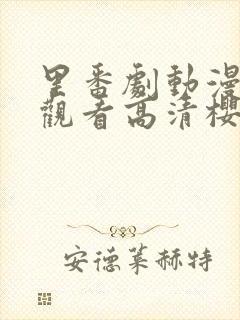 里番劇動漫
觀看高清櫻
安德萊赫特